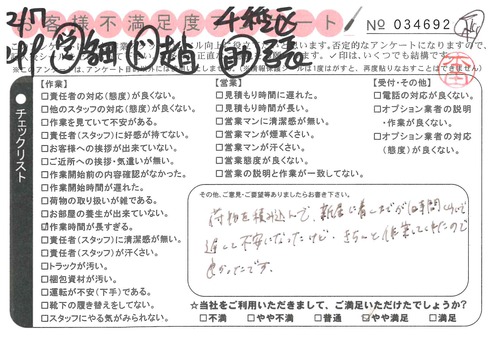 お客様不満足度アンケート
千種区
No 034692
2/7
【作業】
□責任者の対応(態度)が良くない。
□他のスタッフの対応(態度)が良くない。
□作業を見ていて不安がある。
□責任者(スタッフ)に好感が持てない。
□お客様への挨拶が出来ていない。
□ご近所への挨拶・気遣いが無い。
□作業開始前の内容確認がなかった。
□作業開始時間が遅れた。
□荷物の取り扱いが雑である。
□お部屋の養生が出来ていない。
☑作業時間が長すぎる。
□責任者(スタッフ)に清潔感が無い。
□責任者(スタッフ)が汗くさい。
□トラックが汚い。
□梱包資材が汚い。
□運転が不安(下手)である。
□靴下の履き替えをしてない。
□スタッフにやる気がみられない。
チェックリスト
【営業】
□見積もり時間に遅れた。
□見積もり時間が長い。
□営業マンに清潔感が無い。
□営業マンが煙草くさい。
□営業マンが汗くさい。
□営業態度が良くない。
□営業の説明と作業が一致してない。
【受付・その他】
□電話の対応が良くない。
□オプション業者の説明
・作業が良くない。
□オプション業者の対応
(態度)が良くない。
その他、ご意見・ご要望等ありましたらお書き下さい。
荷物を積み込んで、新居に着くまでが
遅くて不安になったけど、きちーんと作業してくれたので
良かったです。
☆当社をご利用いただきまして、ご満足いただけたでしょうか?
□不満 □やや不満 □普通 ☑やや満足 □満足